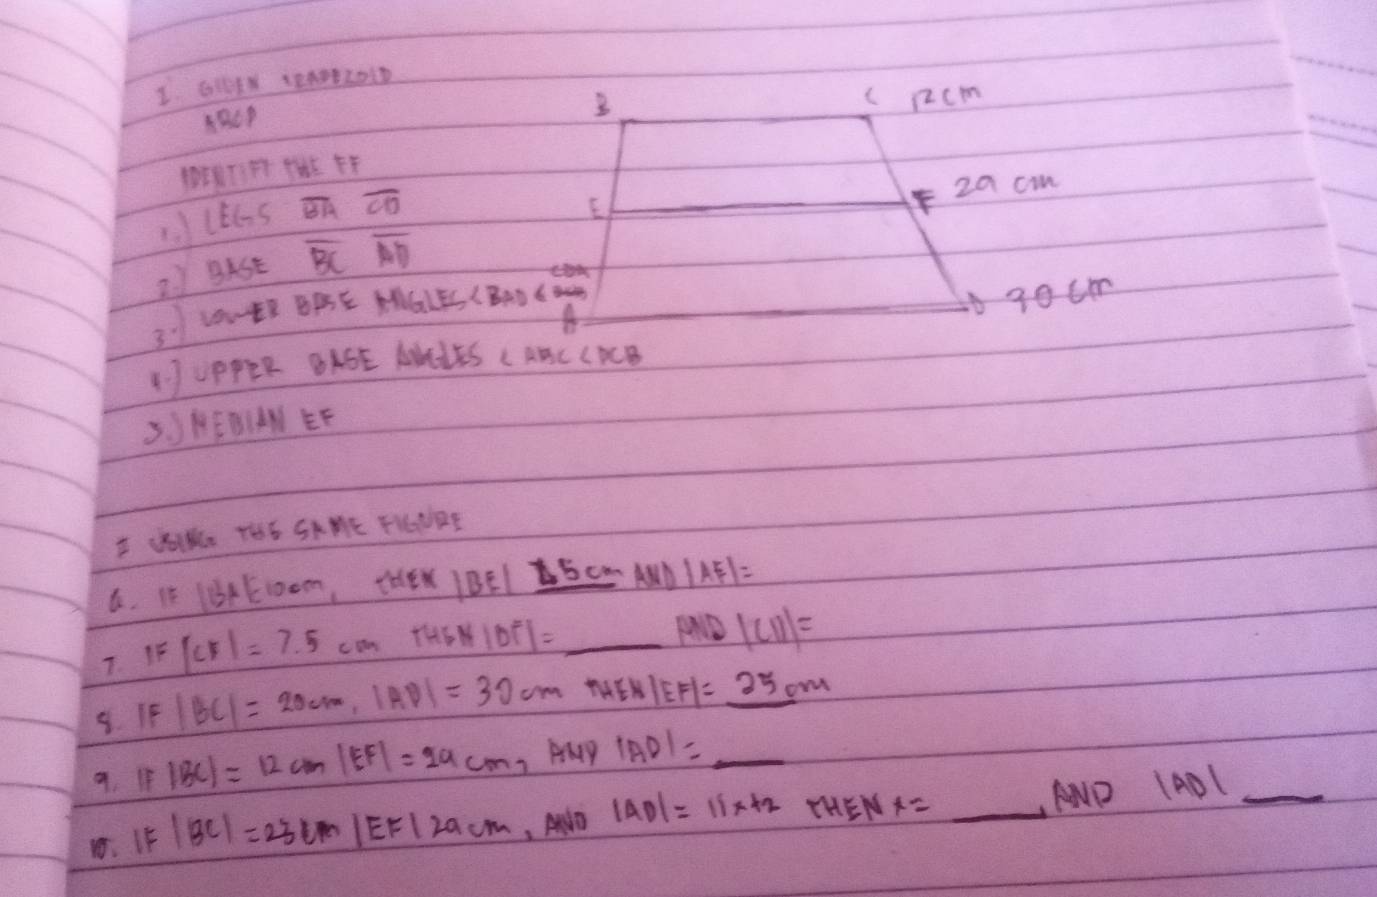 I. GIVEN TRAPEZOID
ABCD
IDENTIFY THE FF
1.) LEGS BA CD
2.) BASE BC AD
3.) LOWER BASE ANGLES < BAD < CDA
4.) UPPER BASE ANGLES < ABC < DCB
5.) MEDIAN EF
B C 12 cm
E F 29 cm
A D 30 cm
II USING THE SAME FIGURE
6. IF |BA|=10cm, THEN |BE| 5 cm AND |AE|=
7. IF |CF| = 7.5 cm THEN |DF| = ____ AND |CD| =
8. IF |BC| = 20cm, |AD| = 30cm THEN |EF| = 25 cm
9. IF |BC| = 12 cm |EF| = 29 cm, AND |AD| = ____
10. IF |BC| = 23 cm |EF| 29 cm, AND |AD| = 11x+2 THEN x = ____, AND |AD| ____